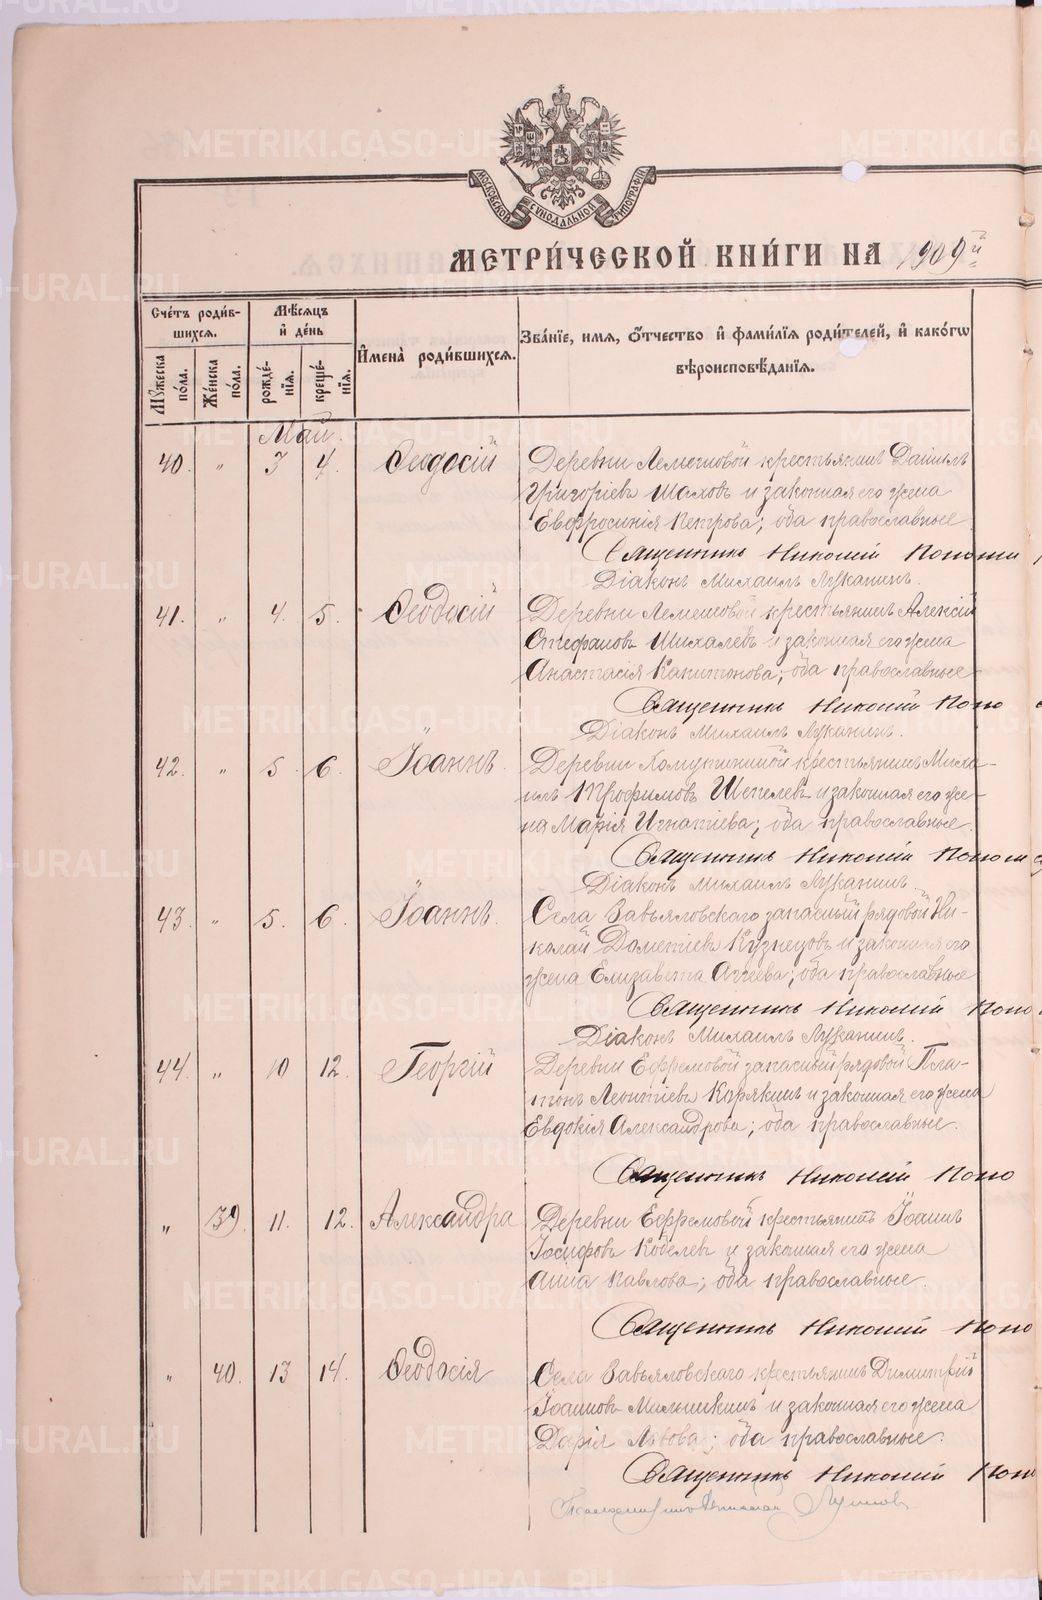 МОСКОВСКОЙ СѴНОДАЛЬНОЙ ТИПОГРАФІИ
МЕТРИ́ЧЕСКОЙ КНИ́ГИ НА 1909й
Сче́тъ роди́в-
шихся.
Мѣ́сяцъ
и҆ де́нь
И҆мена̀ роди́вшихся.
Зва́нїе, имя, ѻ҆́тчество и҆ фами́лїя роди́телей, и҆ како́гѡ
вѣроисповѣ́данїя.
Мꙋжеска по́ла.
Же́нска по́ла.
рожде́-нїя.
креще́-нїя.
Май.
40. „ 3 4. Ѳеодосій Деревни Лемешовой крестьянинъ Даніилъ
Григоріевъ Шаховъ и законная его жена
Евфросинія Петрова; оба православные
Священникъ Николай
Діаконъ Михаилъ Луканинъ.
41. „ 4. 5. Ѳеодосій Деревни Лемешовой крестьянинъ Алексій
Стефановъ Шихалевъ и законная его жена
Анастасія Капитонова; оба православные
Священникъ Николай
Діаконъ Михаилъ Луканинъ.
42. „ 5. 6. Іоаннъ. Деревни Хомутининой крестьянинъ Миха-
илъ Трофимовъ Шепелевъ и законная его же-
на Марія Игнатіева; оба православные.
Священникъ Николай
Діаконъ Михаилъ Луканинъ.
43. „ 5. 6. Іоаннъ. Села Завьяловскаго запасный рядовой Ни-
колай Дометіевъ Кузнецовъ и законная его
жена Елизавета Аггеева; оба православные
Священникъ Николай
Діаконъ Михаилъ Луканинъ.
44. „ 10 12. Георгій Деревни Ефремовой запасный рядовой Пла-
тонъ Леонтіевъ Корякинъ и законная его жена
Евдокія Александрова; оба православные.
Священникъ Николай
„ 39. 11. 12. Александра Деревни Ефремовой крестьянинъ Іоаннъ
Іосифовъ Кобелевъ и законная его жена
Анна Павлова; оба православные.
Священникъ Николай
„ 40. 13 14. Ѳеодосія Села Завьяловскаго крестьянинъ Димитрій
Іоанновъ Мильшинъ и законная его жена
Дарія Львова; оба православные.
Священникъ Николай
METRIKI.GASO-URAL.RU